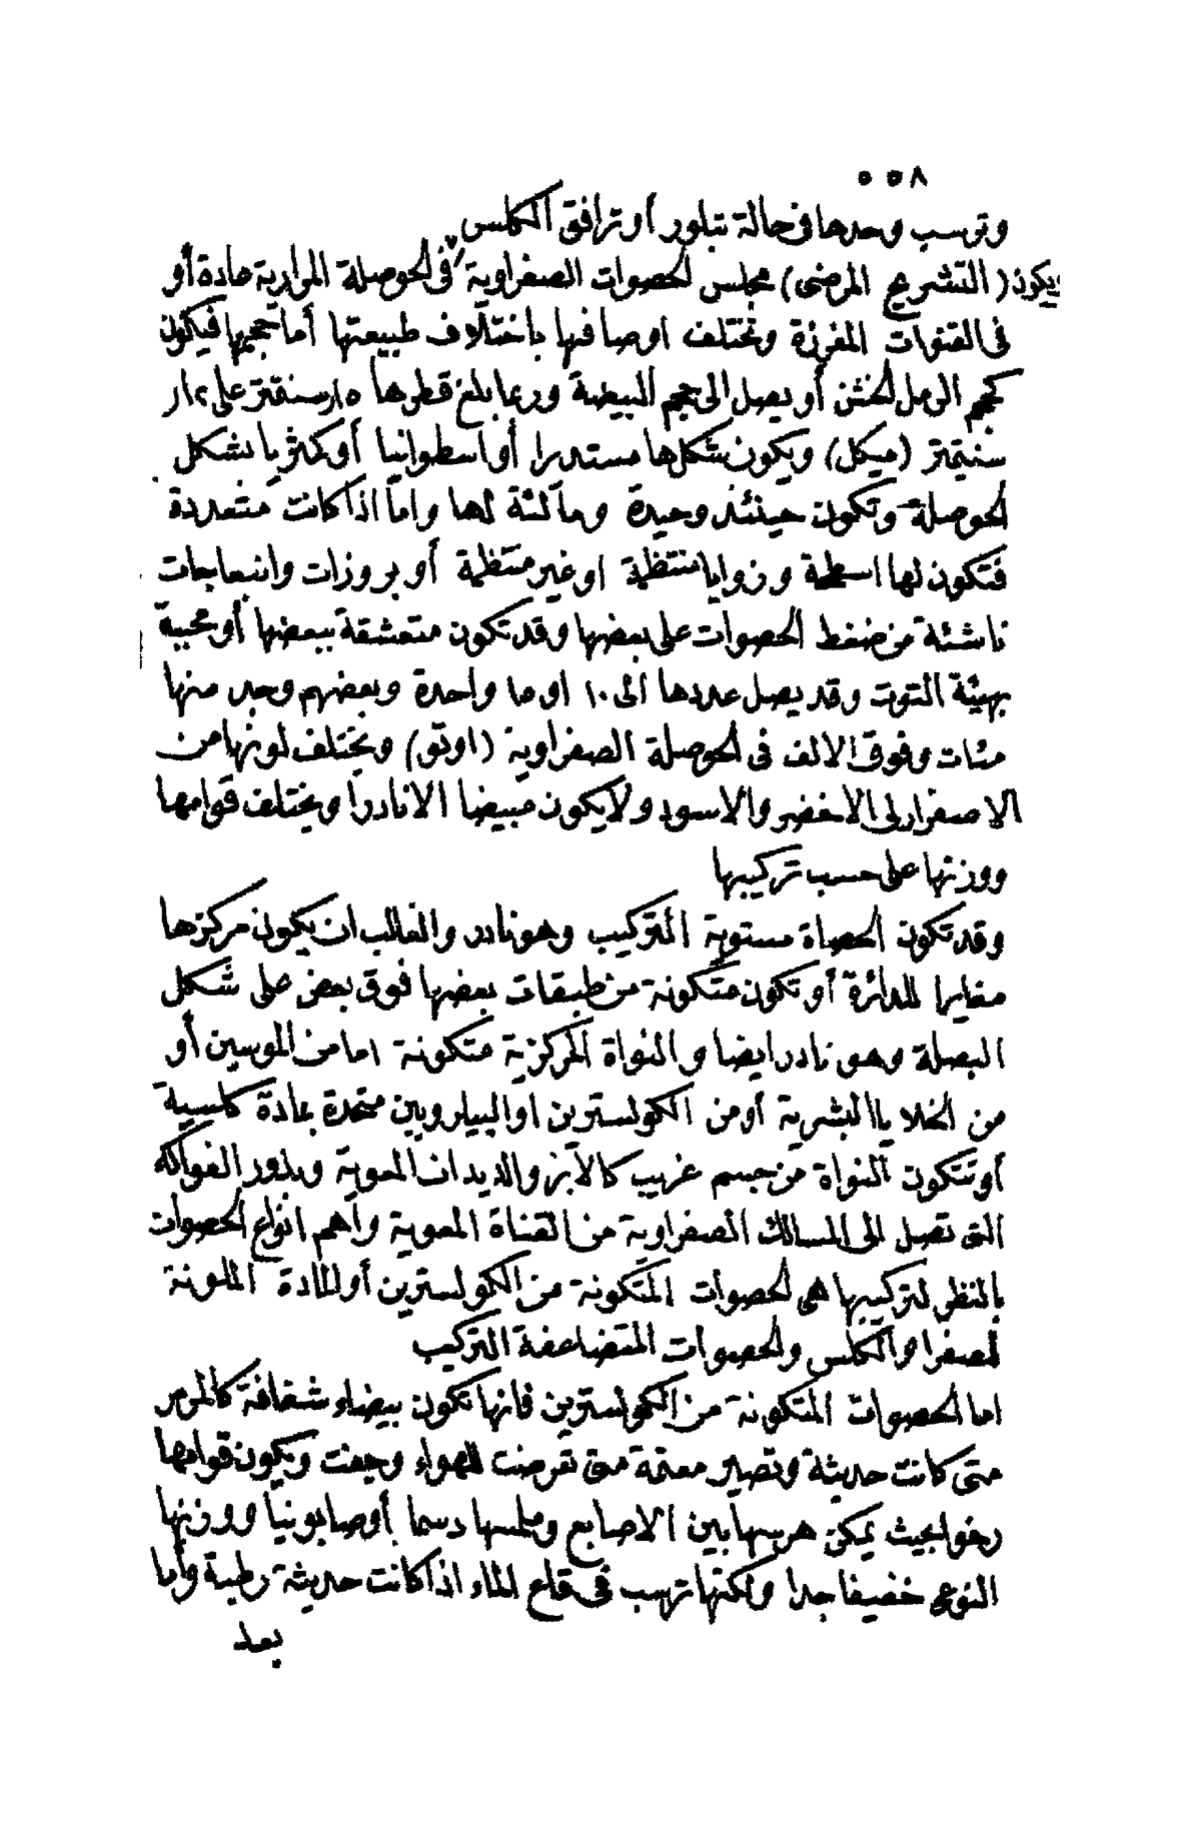 ٥٥٨
وترسب وحدها فى حالة تبلور أو ترافق الكلس
ويكون (التشريح المرضى) مجلس الحصوات الصفراوية فى الحوصلة المرارية عادة أو
فى القنوات المفرزة وتختلف اوصافها باختلاف طبيعتها أما حجمها فيكون
كحجم الرمل الخشن أو يصل الى حجم البيضة وربما بلغ قطرها ١٥ر سنتمتر على ١٢ر
سنتيمتر (ميكل) ويكون شكلها مستديرا أو اسطوانيا أو كمثريا بشكل
الحوصلة وتكون حينئذ وحيدة ومالئة لها واما اذا كانت متعددة
فتكون لها اسطحة وزوايا منتظمة او غير منتظمة أو بروزات وانبعاجات
ناشئة من ضغط الحصوات على بعضها وقد تكون متعشقة ببعضها أو محببة
بهيئة التوت وقد يصل عددها الى ١٠ او ما واحدة وبعضهم وجد منها
مئات وفوق الالف فى الحوصلة الصفراوية (اوتو) ويختلف لونها من
الاصفر الى الاخضر والاسود ولا يكون مبيضا الا نادرا ويختلف قوامها
ووزنها على حسب تركيبها
وقد تكون الحصاة مستوية التركيب وهو نادر والغالب ان يكون مركزها
مغايرا للدائرة أو تكون متكونة من طبقات بعضها فوق بعض على شكل
البصلة وهو نادر ايضا والنواة المركزية متكونة اما من الموسين أو
من الخلايا البشرية أو من الكولسترين او البيليروبين متحدة بمادة كلسية
أو تتكون النواة من جسم غريب كالابر والديدان المعوية وبذور الفواكه
التى تصل الى المسالك الصفراوية من القناة المعوية وأهم انواع الحصوات
بالنظر لتركيبها هى الحصوات المتكونة من الكولسترين أو المادة الملونة
للصفرا والكلس والحصوات المتضاعفة التركيب
اما الحصوات المتكونة من الكولسترين فانها تكون بيضاء شفافة كالمرمر
متى كانت حديثة وتصير معتمة متى تعرضت للهواء وجفت ويكون قوامها
رخوا بحيث يمكن هرسها بين الاصابع وملمسها دسما أو صابونيا ووزنها
النوعى خفيفا جدا ولكنها ترسب فى قاع الماء اذا كانت حديثة رطبة وأما
بعد